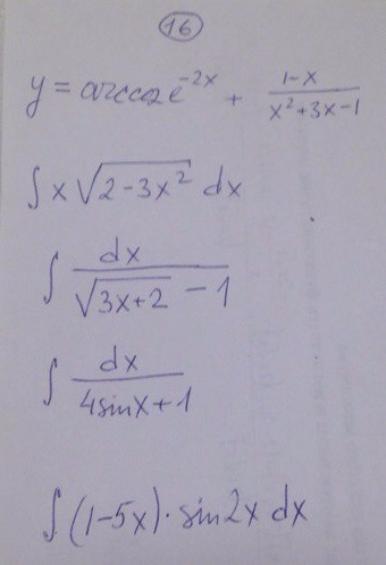 16
y = arccos e^{-2x} + \frac{1-x}{x^2+3x-1}
∫ x √(2-3x²) dx
∫ \frac{dx}{\sqrt{3x+2} - 1}
∫ \frac{dx}{4sinx+1}
∫ (1-5x) · sin2x dx